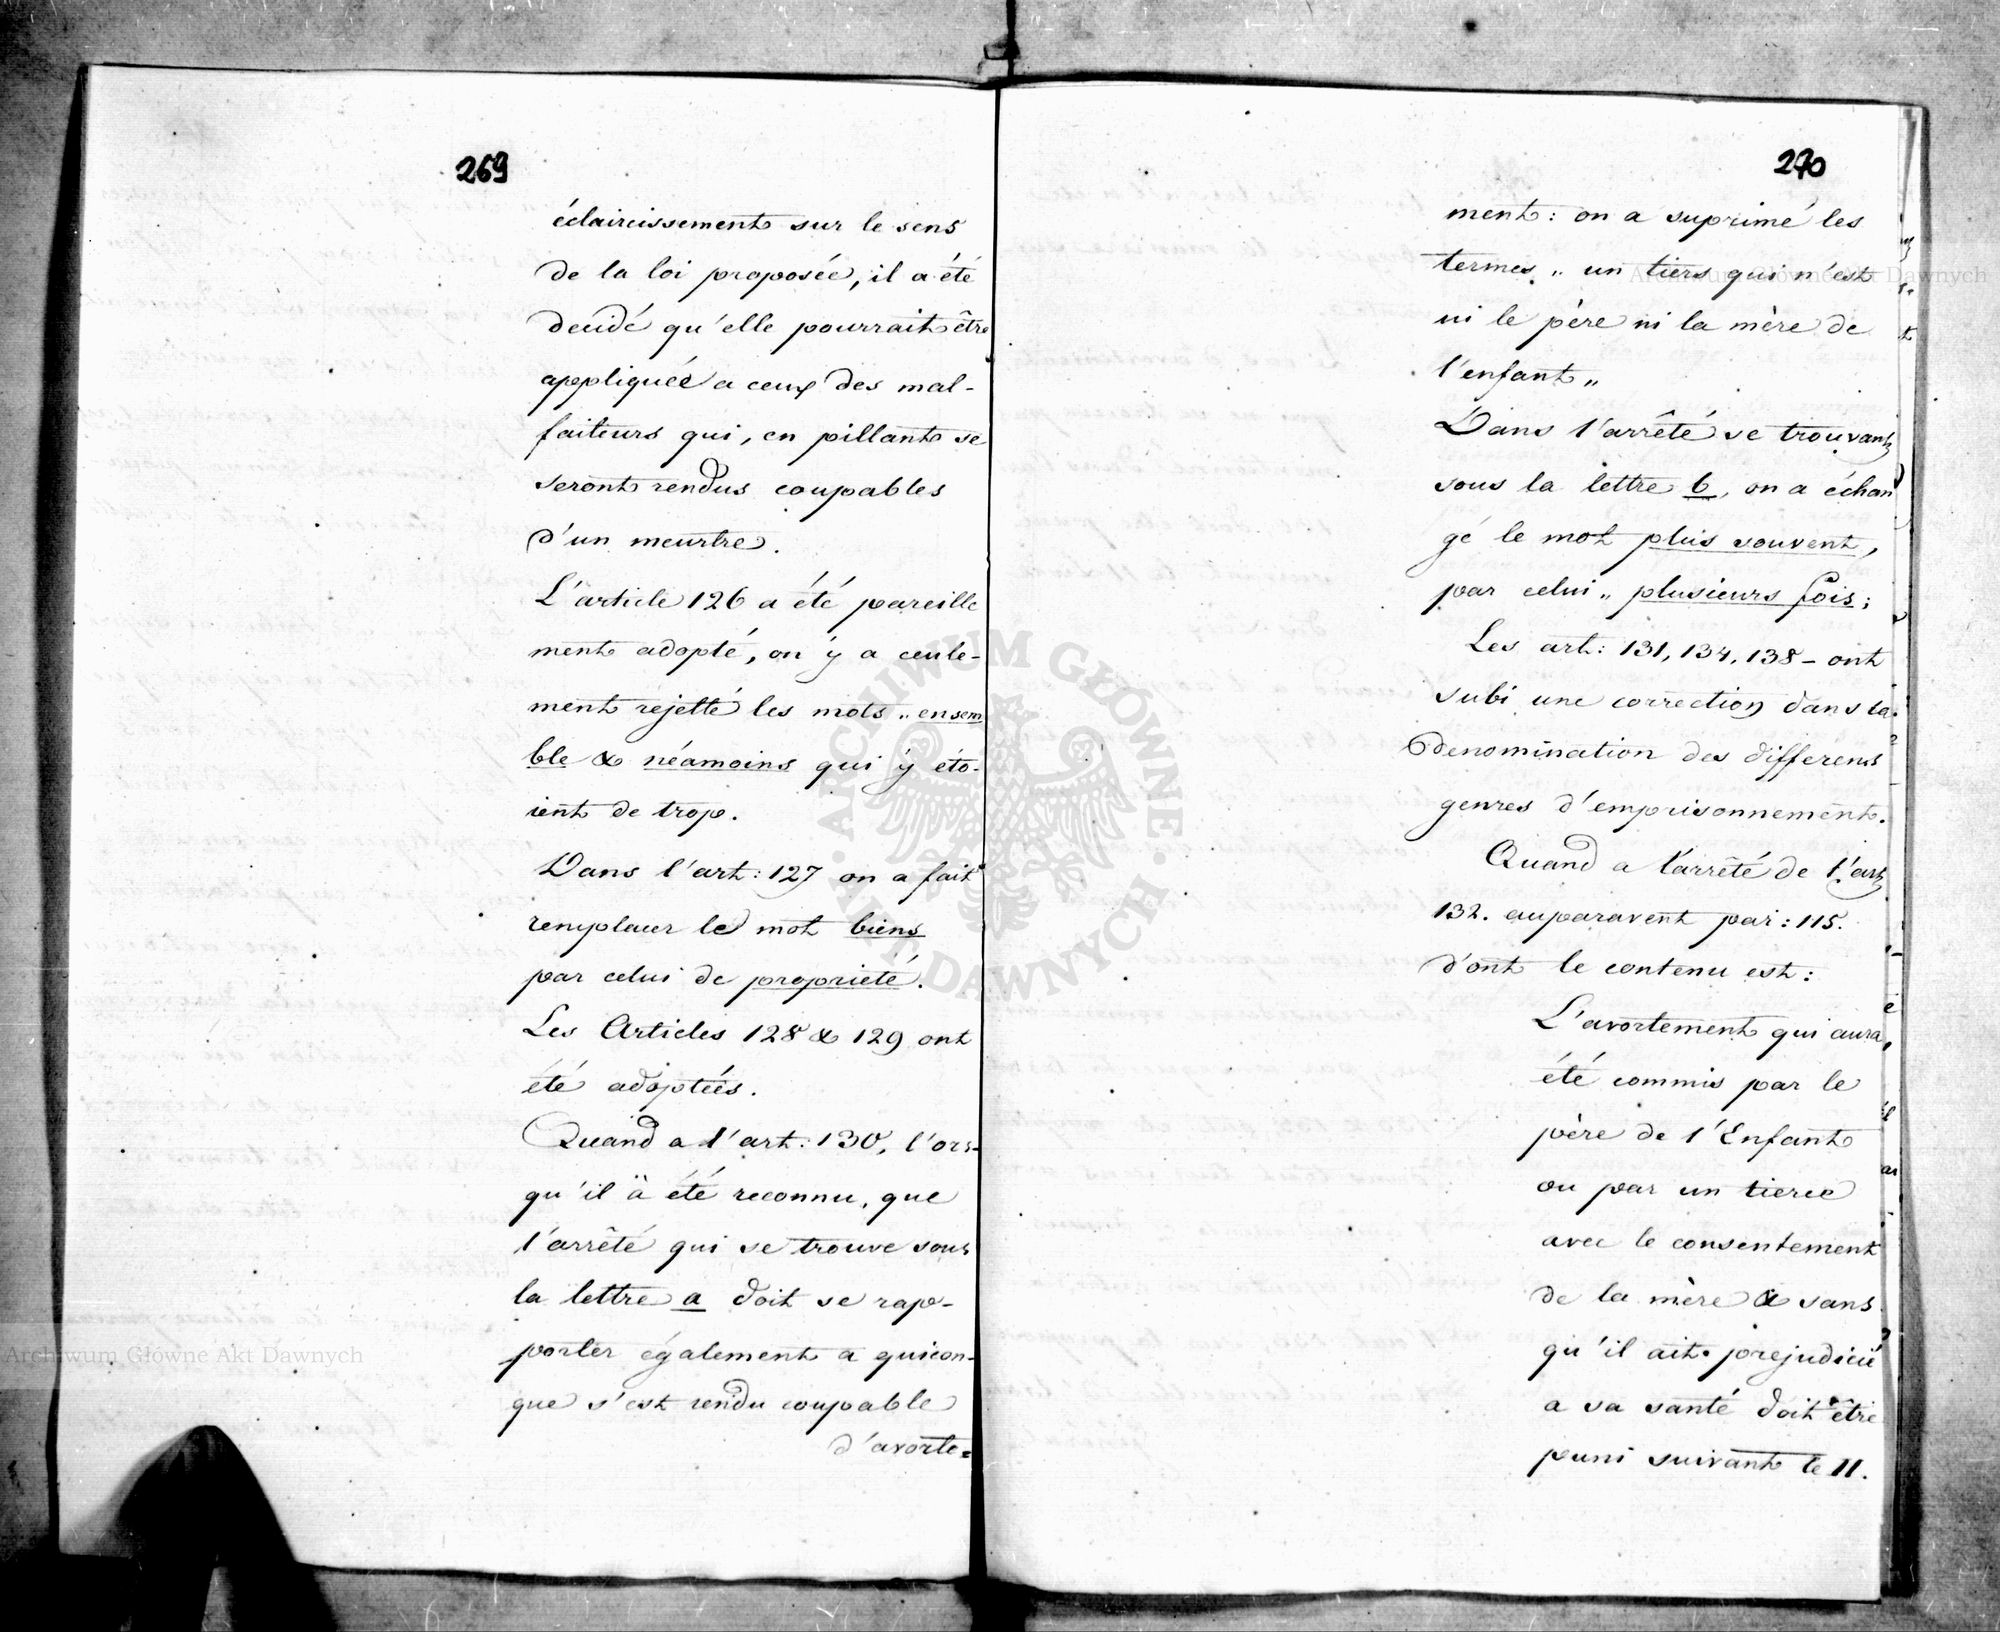 269
éclaircissement sur le sens
de la loi proposée, il a été
decidé qu'elle pourrait être
appliquée a ceux des mal-
faiteurs qui, en pillant se
seront rendus coupables
d'un meurtre.
L'article 126 a été pareille
ment adopté, on y a ceule-
ment rejetté les mots „ ensem
ble & néamoins qui ÿ éto-
ient de trop.
Dans l'art: 127 on a fait
remplacer le mot biens
par celui de proprieté.
Les Articles 128 & 129 ont
été adoptées.
Quand a l'art: 130, l'ors-
qu'il ä été reconnu, que
l'arrêté qui se trouve sous
la lettre a doit se rap-
porter également a quicon-
que s'est rendu coupable
d'avorte=
270
ment: on a suprimé les
termes „ un tiers qui n'est
ni le père ni la mère de
l'enfant „
Dans l'arrêté se trouvant
sous la lettre b, on a échan
gé le mot plus souvent,
par celui „ plusieurs fois;
Les art: 131, 134, 138 - ont
subi une correction dans la
denomination des differens
genres d'emprisonnement.
Quand a l'arrêté de l'art
132. auparavent par: 115.
d'ont le contenu est:
L'avortement qui aura
été commis par le
père de l'Enfant
ou par un tierce
avec le consentement
de la mère & sans
qu'il ait prejudicié
a sa santé doit être
puni suivant le 11.
Archiwum Główne Akt Dawnych
Archiwum Główne Akt Dawnych
ARCHIWUM GŁÓWNE AKT DAWNYCH